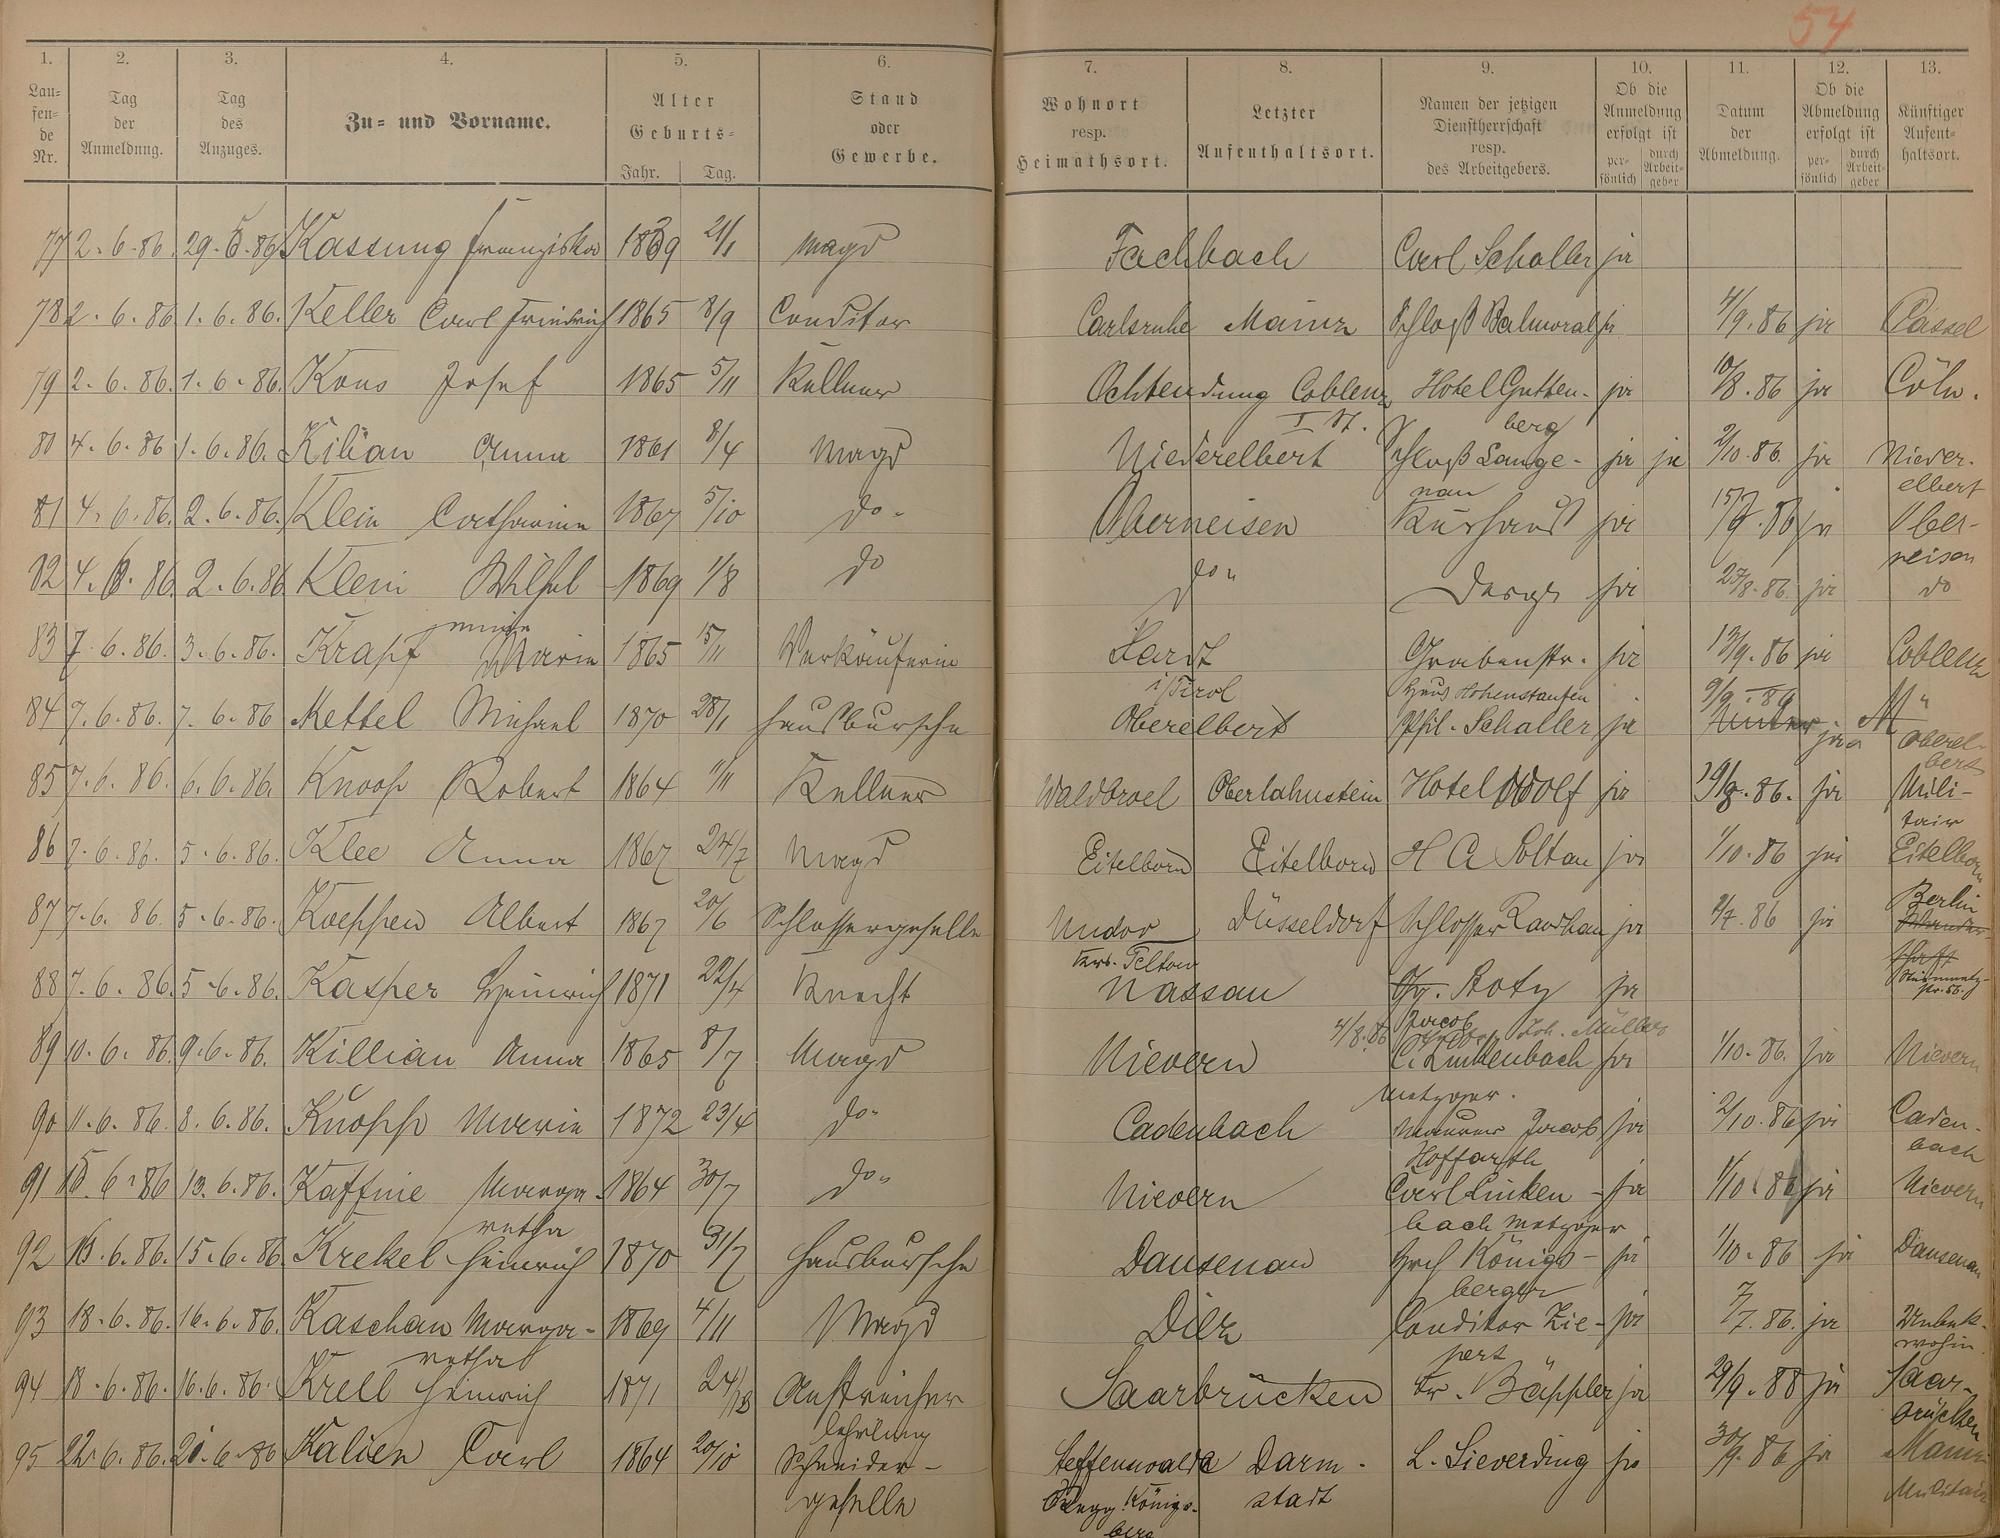 54
1. 2. 3. 4. 5. 6. 7. 8. 9. 10. 11. 12. 13.
Lau=fen=de Nr. Tag der Anmeldung. Tag des Anzuges. Zu= und Vorname. Alter Geburts= Jahr. Tag. Stand oder Gewerbe. Wohnort resp. Heimathsort. Letzter Aufenthaltsort. Namen der jetzigen Dienstherrschaft resp. des Arbeitgebers. Ob die Anmeldung erfolgt ist per=sönlich durch Arbeit=geber Datum der Abmeldung. Ob die Abmeldung erfolgt ist per=sönlich durch Arbeit=geber Künftiger Aufent=haltsort.
77 2.6.86. 29.5.86. Kassung Franziska 1869 21/1 Magd Fachbach Carl Schaller ja
78 2.6.86 1.6.86. Keller Carl Friedrich 1865 8/9 Conditor Carlsruhe Mainz Schloß Balmoral ja 4/9.86 ja Cassel
79 2.6.86. 1.6.86. Kons Josef 1865 5/11 Kellner Ochtendung Coblenz Hotel Gutten- ja 10/8.86 ja Cöln.
I St. berg
80 4.6.86 1.6.86. Kilian Anna 1861 8/4 Magd Niederelbert Schloß Lange- ja ja 2/10.86. ja Nieder-
nau elbert
81 4.6.86. 2.6.86. Klein Catharina 1867 5/10 do. Oberneisen Kurhaus ja 15/7.86 ja Ober-
neisen
82 4.6.86. 2.6.86 Klein Wilhel 1869 1/8 do do " ja 27/8.86. ja do
mine
83 7.6.86. 3.6.86. Krapf Maria 1865 15/11 Verkäuferin Hardt Grabenstr. ja 13/9.86 ja Coblenz
i/Tirol Haus Hohenstaufen 9/9 - 89
84 7.6.86. 7.6.86 Kettel Michael 1870 28/1 Hausbursche Oberelbert Phil. Schaller ja ja Oberel-
bert
85 7.6.86. 6.6.86. Knoop Robert 1864 1/11 Kellner Waldbroel Oberlahnstein Hotel Wolf ja 19/8.86. ja Mili-
tair
86 7.6.86. 5.6.86. Klee Anna 1867 24/7 Magd Eitelborn Eitelborn H A Soltau ja 1/10.86 ja Eitelborn
Berlin
87 7.6.86. 5.6.86. Koeppen Albert 1867 20/6 Schlossergeselle Düsseldorf Schlosser ja 2/7.86 ja
Krs. Teltow
88 7.6.86. 5.6.86. Kasper Heinrich 1871 22/4 Knecht Nassau ja
4/8.86 Jacob Joh. Müller
89 10.6.86 9.6.86. Killian Anna 1865 8/7 Magd Nievern C. Linkenbach ja 1/10.86. ja Nievern
Metzger.
90 11.6.86 8.6.86. Knopp Maria 1872 23/4 do. Cadenbach Maurer Jacob ja 2/10.86 ja Caden-
Hoffarth bach
91 15.6.86 13.6.86. Kaffine Marga- 1864 30/7 do " Nievern Carl Linken- ja 1/10.86 ja Nievern
retha bach Metzger
92 16.6.86. 15.6.86 Krekel Heinrich 1870 31/7 Hausbursche Dausenau Königs- ja 1/10.86 ja Dausenau
berger
93 18.6.86. 16.6.86. Kaschau Marga- 1869 4/11 Magd Diez Conditor Zie- ja 7/7.86. ja Unbek.
retha pert wohin.
94 18.6.86. 16.6.86. Krell Heinrich 1871 24/12 Anstreicher Saarbrücken Fr. Bäppler ja 29/9.88 ja Saar-
lehrling brücken
95 22.6.86. 21.6.86 Kalien Carl 1864 20/10 Schneider- Steffenwalde Darm- L. Sieverding ja 30/9.86 ja
geselle Königs- stadt Militair
berg